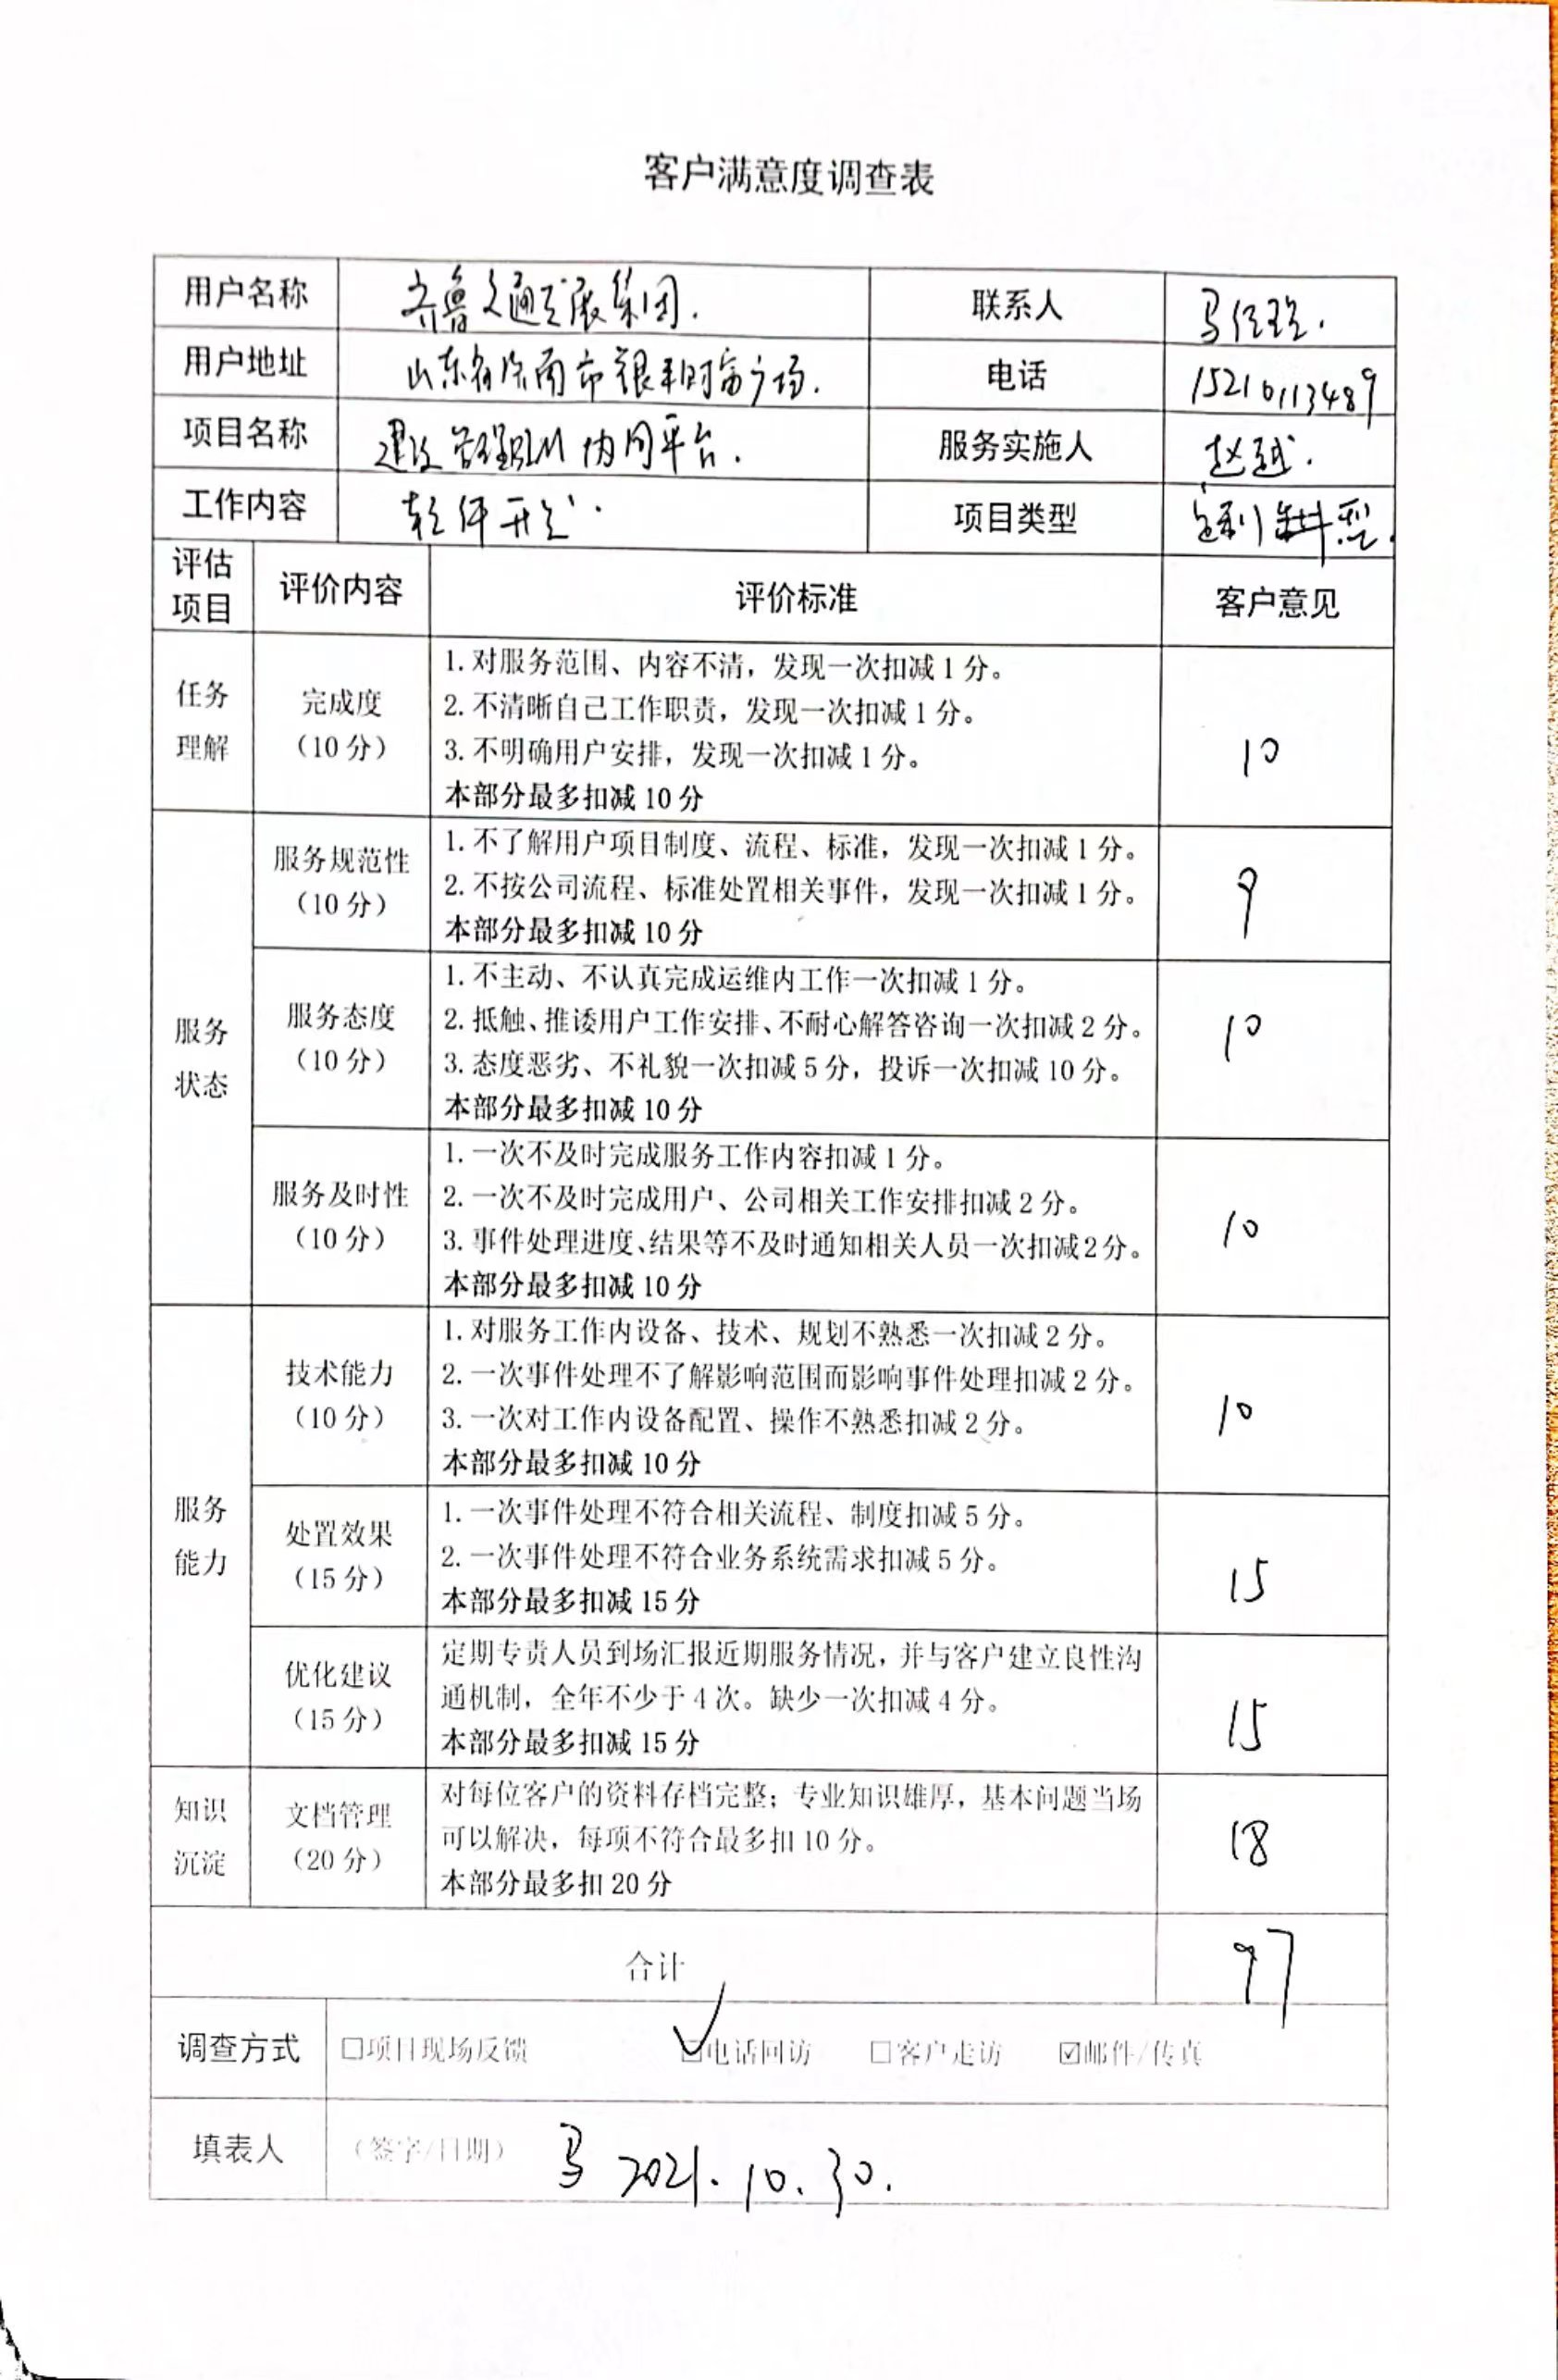 客户满意度调查表
用户名称 齐鲁交通发展集团. 联系人 马经理.
用户地址 山东省济南市银丰财富广场. 电话 15210113489
项目名称 建设管理BIM协同平台. 服务实施人 赵越.
工作内容 软件开发. 项目类型
评估项目 评价内容 评价标准 客户意见
任务理解 完成度（10分） 10
1. 对服务范围、内容不清，发现一次扣减1分。
2. 不清晰自己工作职责，发现一次扣减1分。
3. 不明确用户安排，发现一次扣减1分。
本部分最多扣减10分
服务状态 服务规范性（10分） 9
1. 不了解用户项目制度、流程、标准，发现一次扣减1分。
2. 不按公司流程、标准处置相关事件，发现一次扣减1分。
本部分最多扣减10分
服务态度（10分） 10
1. 不主动、不认真完成运维内工作一次扣减1分。
2. 抵触、推诿用户工作安排、不耐心解答咨询一次扣减2分。
3. 态度恶劣、不礼貌一次扣减5分，投诉一次扣减10分。
本部分最多扣减10分
服务及时性（10分） 10
1. 一次不及时完成服务工作内容扣减1分。
2. 一次不及时完成用户、公司相关工作安排扣减2分。
3. 事件处理进度、结果等不及时通知相关人员一次扣减2分。
本部分最多扣减10分
服务能力 技术能力（10分） 10
1. 对服务工作内设备、技术、规划不熟悉一次扣减2分。
2. 一次事件处理不了解影响范围而影响事件处理扣减2分。
3. 一次对工作内设备配置、操作不熟悉扣减2分。
本部分最多扣减10分
处置效果（15分） 15
1. 一次事件处理不符合相关流程、制度扣减5分。
2. 一次事件处理不符合业务系统需求扣减5分。
本部分最多扣减15分
优化建议（15分） 15
定期专责人员到场汇报近期服务情况，并与客户建立良性沟
通机制，全年不少于4次。缺少一次扣减4分。
本部分最多扣减15分
知识沉淀 文档管理（20分） 18
对每位客户的资料存档完整；专业知识雄厚，基本问题当场
可以解决，每项不符合最多扣10分。
本部分最多扣20分
合计 97
调查方式 □项目现场反馈 ☑电话回访 □客户走访 ☑邮件/传真
填表人 （签字/日期） 马 2021.10.30.